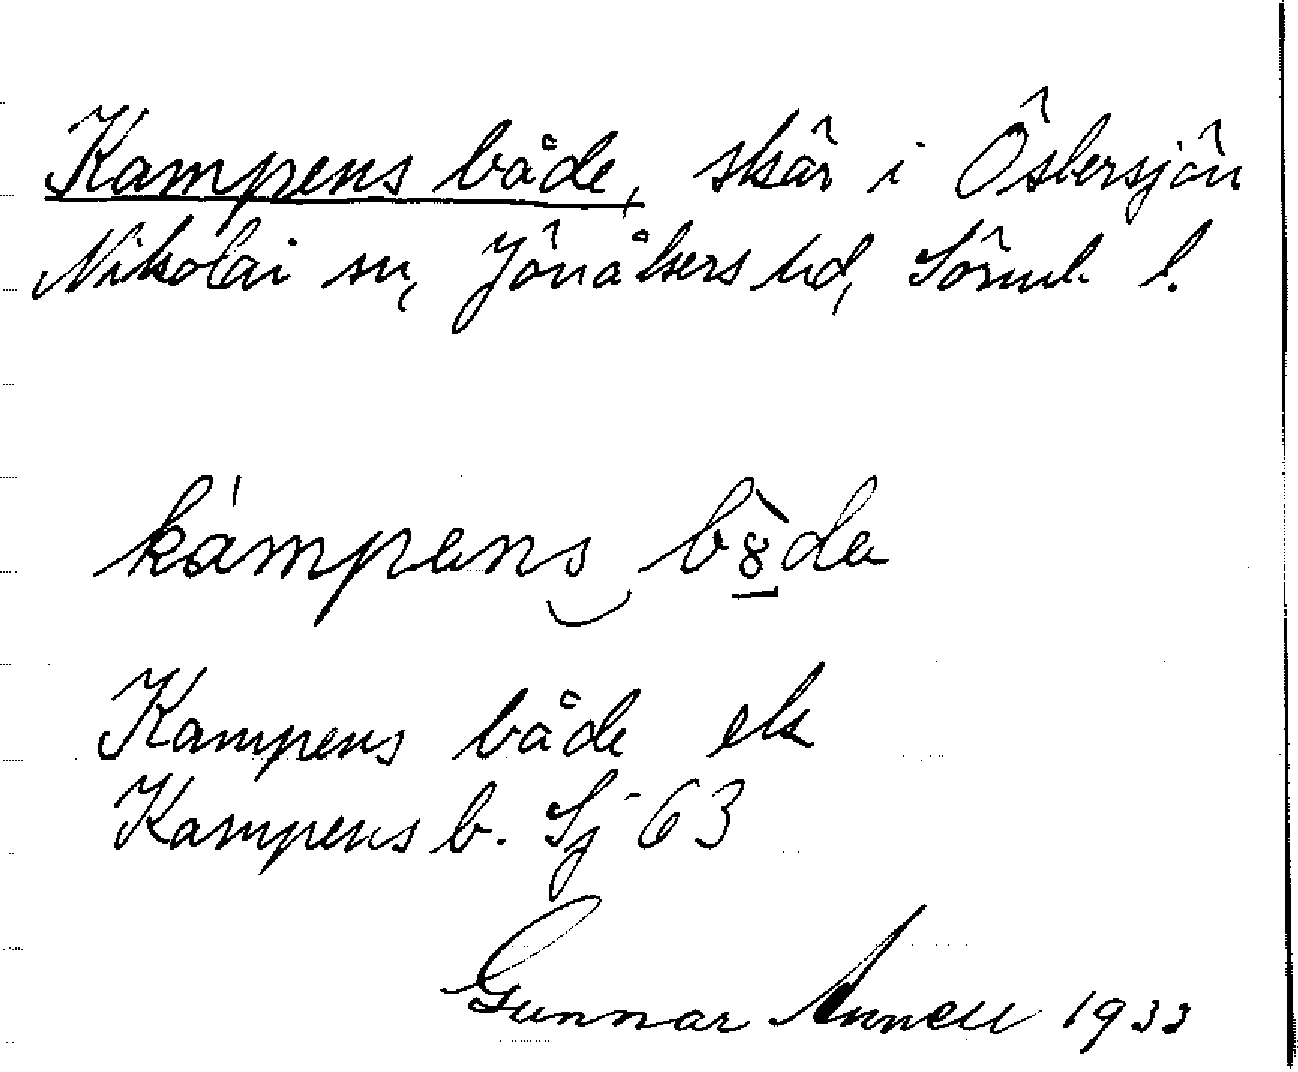 Kampens både, skär i Östersjön
Nikolai sn, Jönåkers hd, Söml. l.
kámpens bòda
Kampens både ek
Kampens b. Sj 63
Gunnar Annell 1933